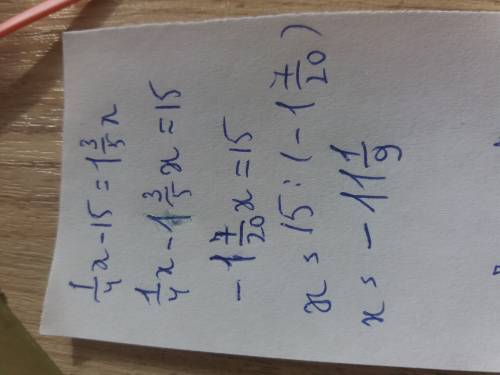 1/4 x - 15 = 1 3/5 x
1/4 x - 1 3/5 x = 15
- 1 7/20 x = 15
x = 15 : (- 1 7/20)
x = - 11 1/9